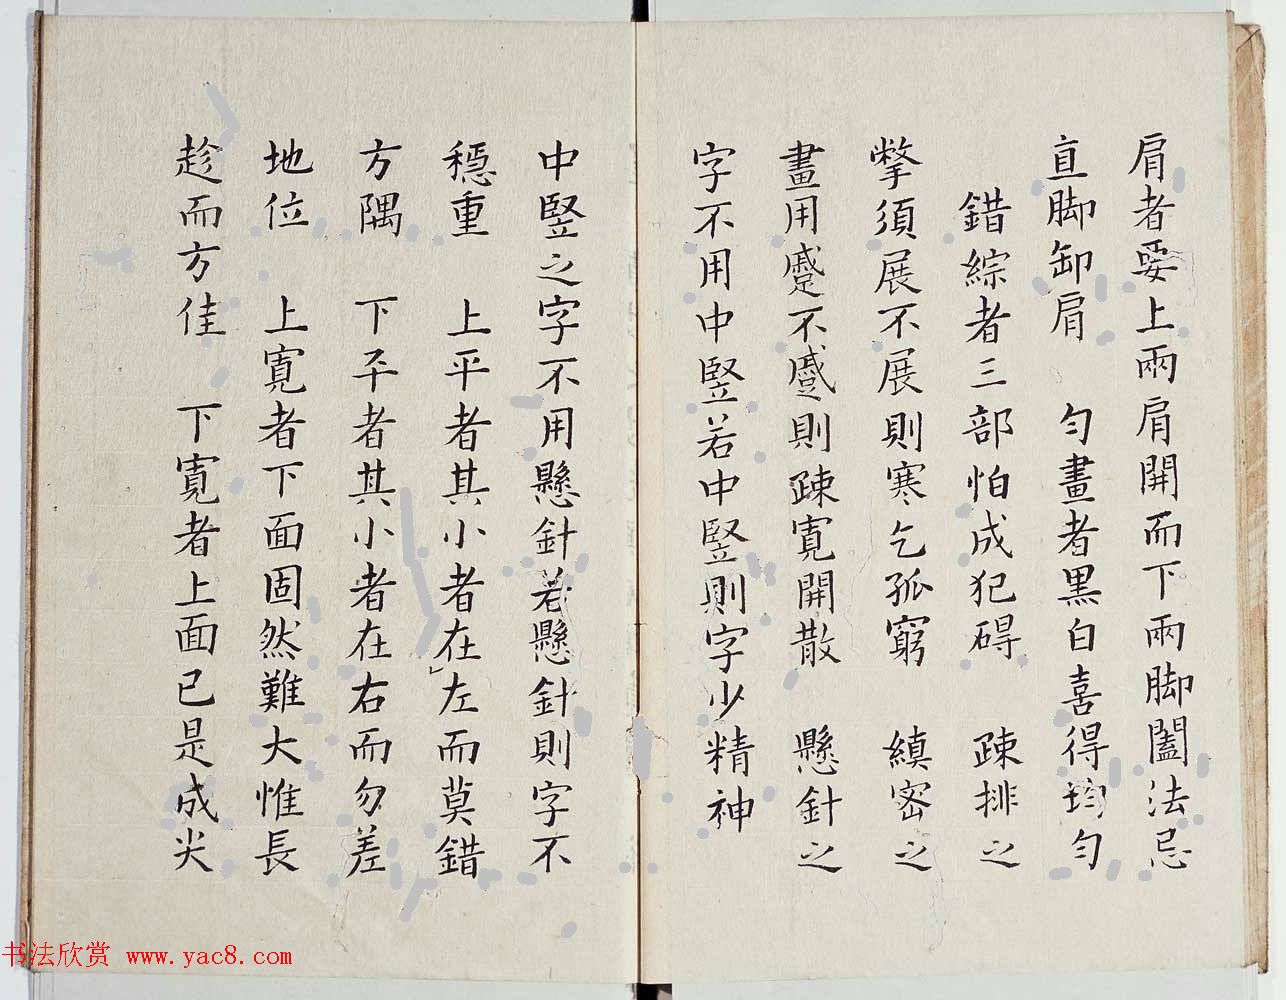 肩者要上兩肩開而下兩脚闔法忌
直脚卸肩　勻畫者黑白喜得均勻
錯綜者三部怕成犯碍　疎排之
撆須展不展則寒乞孤窮　縝密之
畫用蹙不蹙則疎寬開散　懸針之
字不用中竪若中竪則字少精神
中竪之字不用懸針若懸針則字不
穩重　上平者其小者在左而莫錯
方隅　下平者其小者在右而勿差
地位　上寬者下面固然難大惟長
趁而方佳　下寬者上面已是成尖
书法欣赏 www.yac8.com